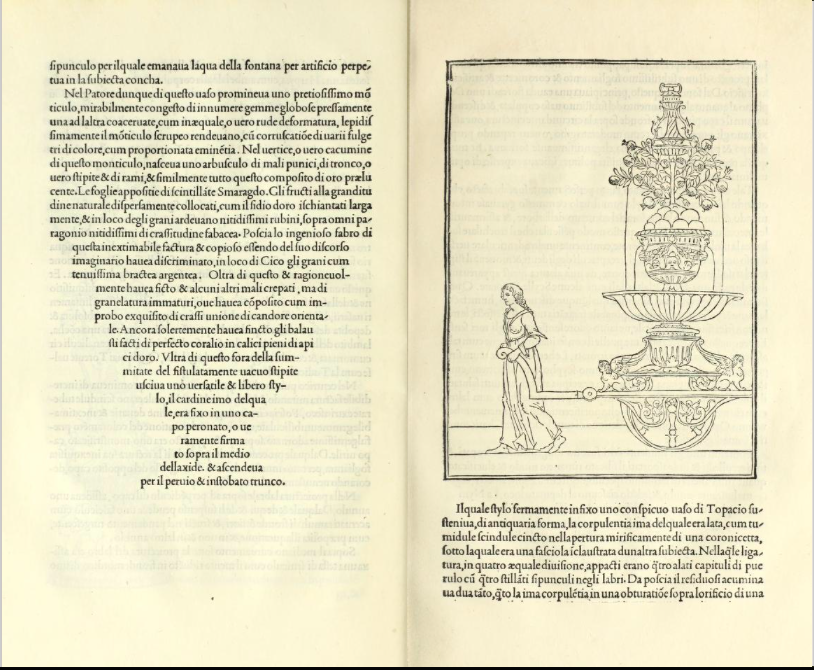 ſipunculo per ilquale emanaua laqua della fontana per artificio perpe-
tua in la ſubiecta concha.
Nel Patore dunque di queſto uaſo promineua uno pretioſiſſimo mõ
ticulo, mirabilmente congeſto di innumere gemme globoſe preſſamente
una ad laltra coaceruate, cum inæquale, o uero rude deformatura, lepidiſ
ſimamente il mõticulo ſcrupeo rendeuano, cũ corruſcatiõe di uarii fulge
tri di colore, cum proportionata eminẽtia. Nel uertice, o uero cacumine
di queſto monticulo, naſceua uno arbuſculo di mali punici, di tronco, o
uero ſtipite & di rami, & ſimilmente tutto queſto compoſito di oro prælu
cente. Le foglie appoſitie di ſcintillãte Smaragdo. Gli fructi alla granditu
dine naturale diſperſamente collocati, cum il ſidio doro iſchiantati larga
mente, & in loco degli grani ardeuano nitidiſſimi rubini, ſopra omni pa-
ragonio nitidiſſimi di craſſitudine fabacea. Poſcia lo ingenioſo fabro di
queſta inextimabile factura & copioſo eſſendo del ſuo diſcorſo
imaginario hauea diſcriminato, in loco di Cico gli grani cum
tenuiſſima bractea argentea. Oltra di queſto & ragioneuol-
mente hauea ficto & alcuni altri mali crepati, ma di
granelatura immaturi, oue hauea cõpoſito cum im-
probo exquiſito di craſſi unione di candore orienta-
le. Ancora ſolertemente hauea fincto gli balau
ſti facti di perfecto coralio in calici pieni di api
ci doro. Vltra di queſto fora della ſum-
mitate del fiſtulatamente uacuo ſtipite
uſciua uno uerſatile & libero ſty-
lo, il cardine imo delqua
le, era fixo in uno ca-
po peronato, o ue
ramente firma
to ſopra il medio
dellaxide. & aſcendeua
per il peruio & inſtobato trunco.
Ilquale ſtylo fermamente infixo uno conſpicuo uaſo di Topacio ſu-
ſteniua, di antiquaria forma, la corpulentia ima delquale era lata, cum tu-
midule ſcindule cincto nella pertura mirificamente di una coronicetta,
ſotto laquale era una faſciola iclauſtrata dunaltra ſubiecta. Nellaq̃le liga-
tura, in quatro æquale diuiſione, appacti erano q̃tro alati capituli di pue
rulo cũ q̃tro ſtillãti ſipunculi negli labri. Da poſcia il reſiduo ſi acumina
ua dua tãto, q̃to la ima corpulẽtia, in una obturatiõe ſopra lorificio di una